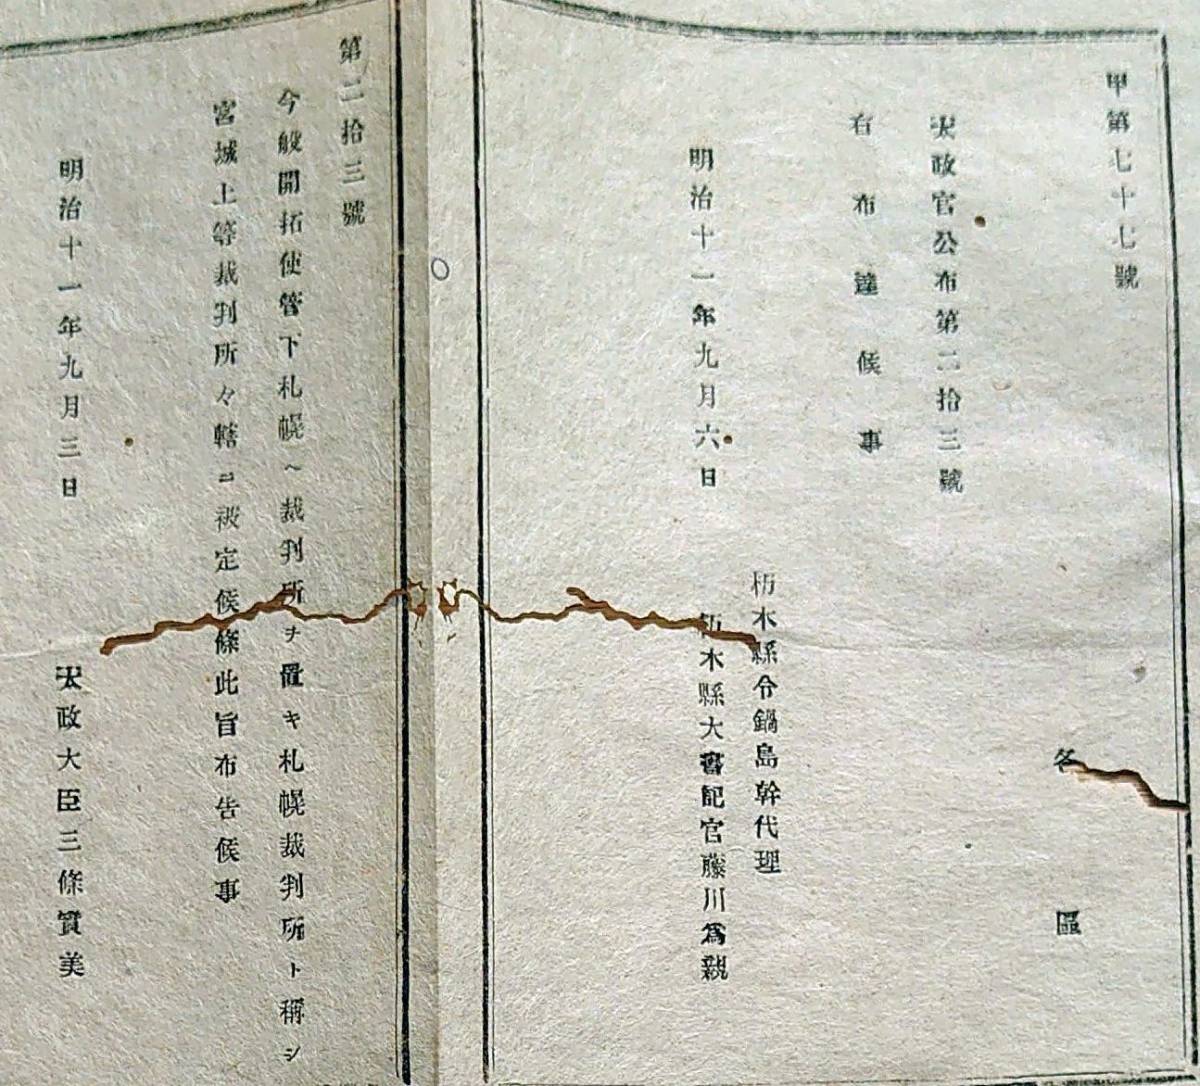 甲第七十七號
各區
太政官公布第二拾三號
右布達候事
栃木縣令鍋島幹代理
明治十一年九月六日 栃木縣大書記官藤川爲親
第二拾三號
今般開拓使管下札幌ヘ裁判所ヲ置キ札幌裁判所ト稱シ
宮城上等裁判所々轄ニ被定候條此旨布告候事
明治十一年九月三日 太政大臣三條實美